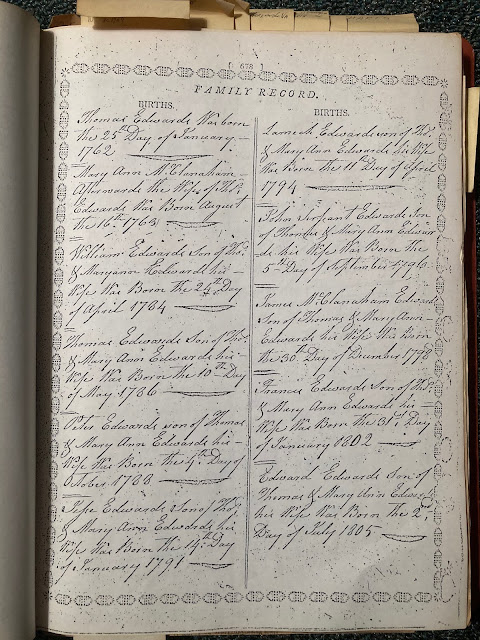 [ 678 ]
FAMILY RECORD.
BIRTHS.
Thomas Edwards Was born
the 25th Day of January
1762
Mary Ann McClanaham
Afterwards the Wife of Tho.s
Edwards Was Born August
the 16th 1763
William Edwards Son of Tho.s
& Maryann Edwards his
Wife Was Born the 24th Day
of April 1784
Thomas Edwards Son of Tho.s
& Mary Ann Edwards his
Wife Was Born the 10th Day
of May 1786
Peter Edwards son of Thomas
& Mary Ann Edwards his
Wife Was Born the 4th Day of
October 1788
Son of Tho.s
& Mary Ann Edwards his
Wife Was Born the 14th Day
of January 1791
BIRTHS.
Edwards son of Tho.s
& Mary Ann Edwards his Wife
Was Born the 11th Day of April
1794
John Serjeant Edwards Son
of Thomas & Mary Ann Edwar
ds his Wife Was Born the
5th Day of September 1796
James McClanaham Edwards
Son of Thomas & Mary Ann
Edwards his Wife Was Born
the 30th Day of December 1798
Francis Edwards Son of Tho.s
& Mary Ann Edwards his
Wife Was Born the 31st Day
of January 1802
Edward Edwards Son of
Thomas & Mary Ann Edwards
his Wife Was Born the 2d
Day of July 1805